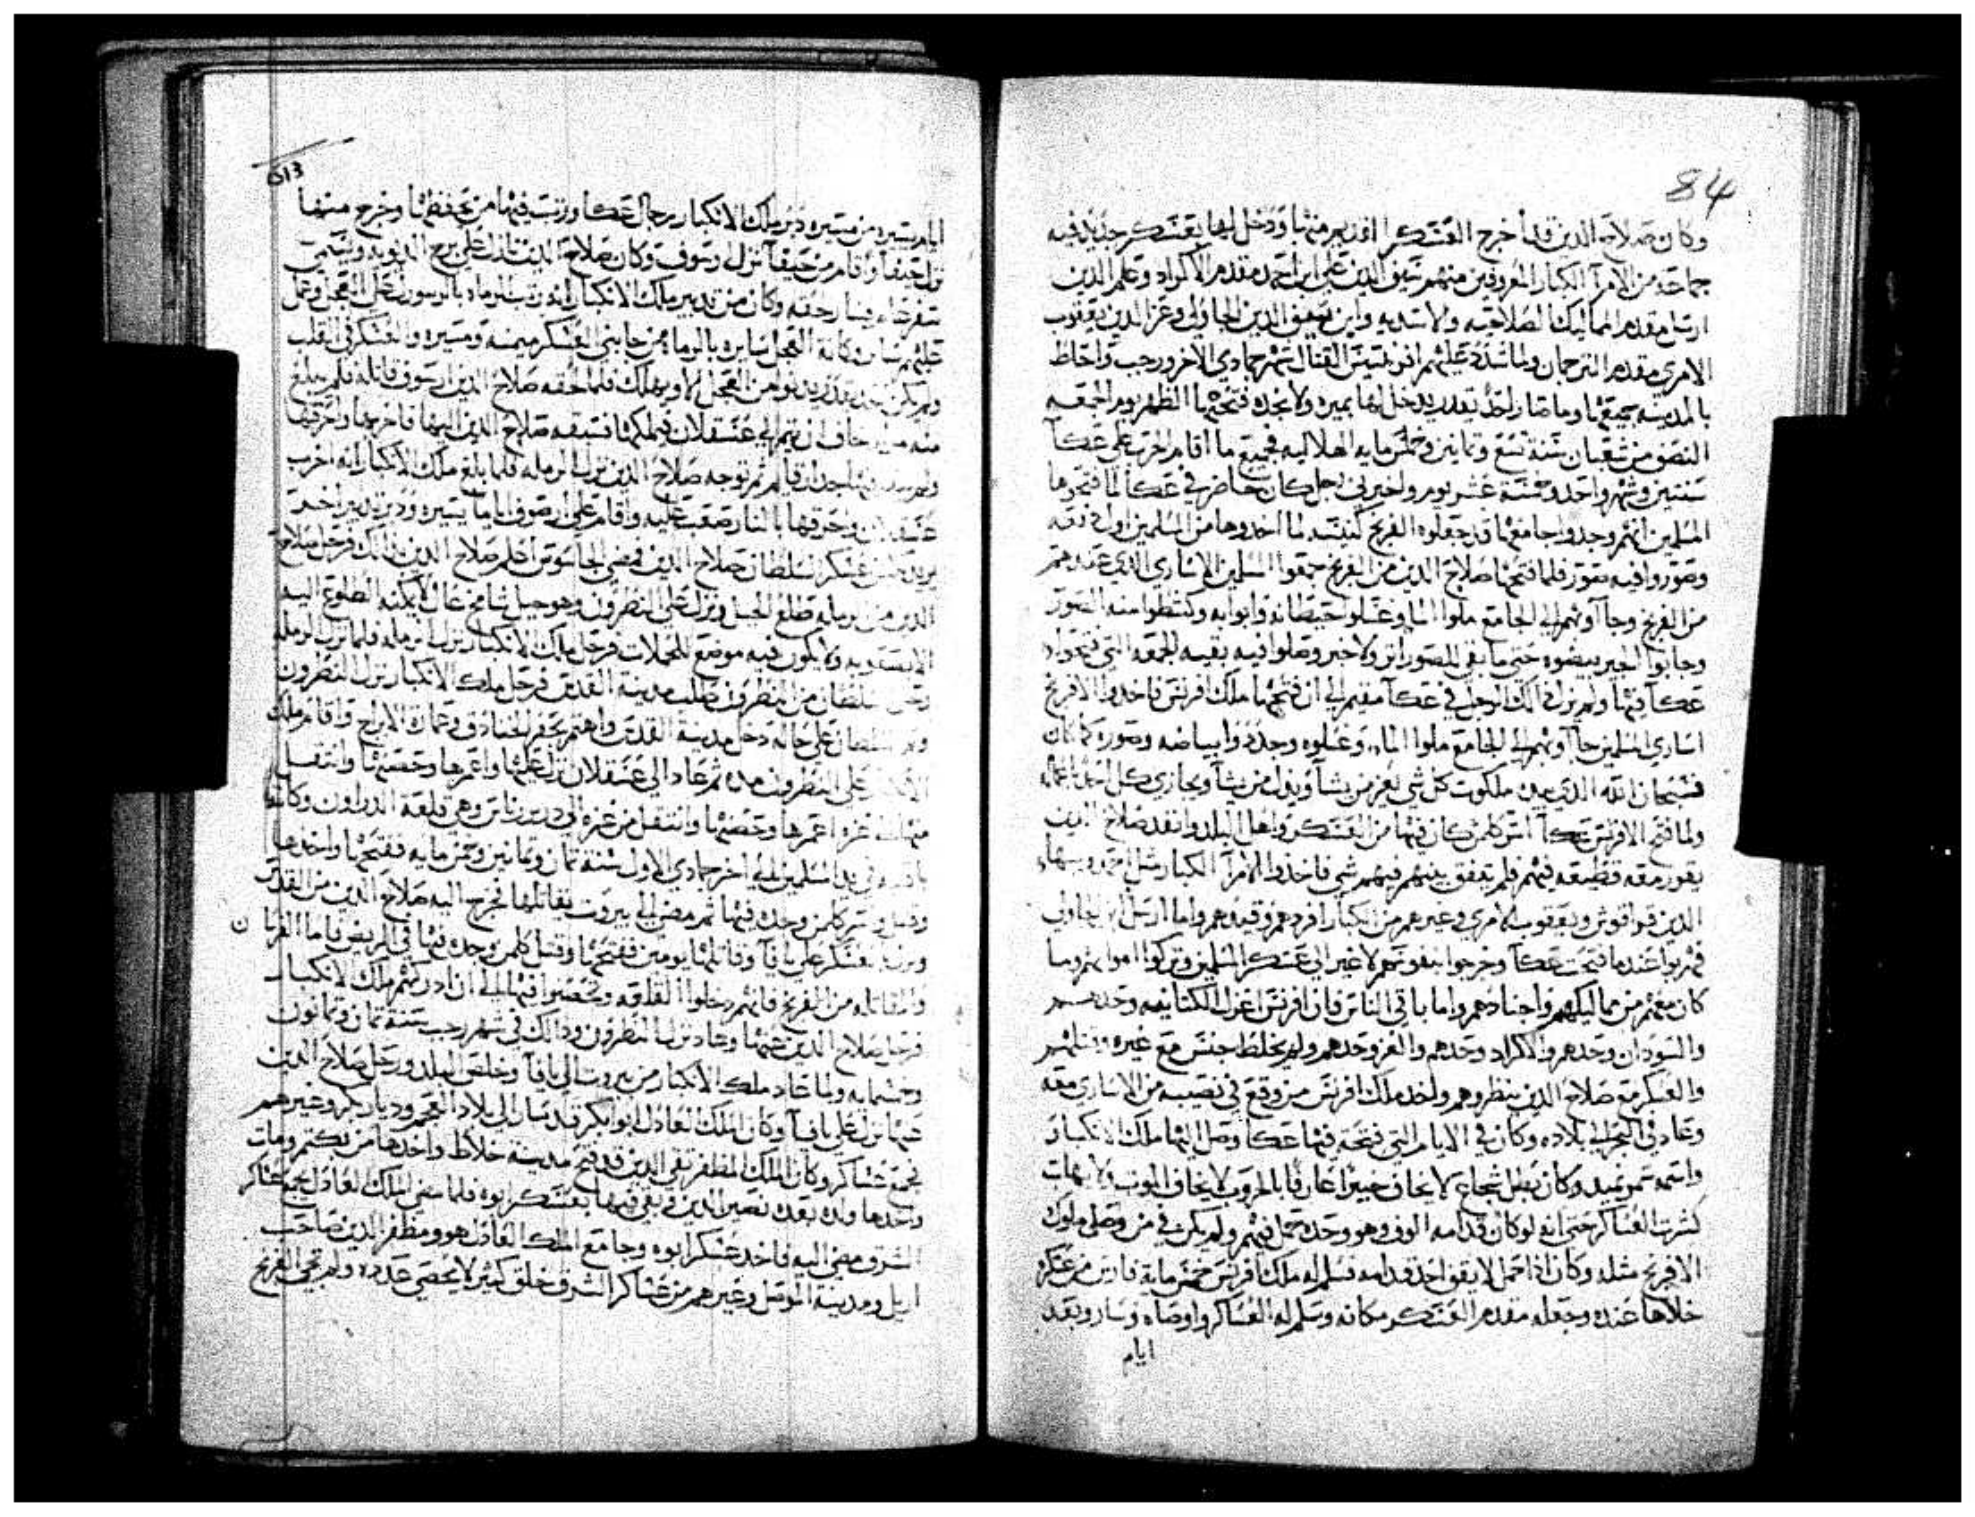 84
وكان صلاح الدين قد أخرج العسكر القديم منها ودخل اليها بعسكر جديد فيه
جماعه من الامرآ الكبار المعروفين منهم سيف الدين علي ابن احمد مقدم الاكراد وعلم الدين
ارسل مقدم المماليك الصلاحيه والاسديه وابن الجاولي وعز الدين يعقوب
الامري مقدم التركمان ولما شدد عليهم القتال شهر جمادي الاخر ورجب واحاط
بالمدينه جميعها وما صار احد يقدر يدخل لها بميره ولا نجده فتحها الظهر يوم الجمعه
النصف من شعبان سنة تسع وثمانين وخمس مايه الهلاليه فجميع ما اقام الحرب علي عكآ
سنتين وشهر واحد وستة عشر يوم واخبرني رجل كان حاضر في عكآ لما فتحوها
المسلمين انهم وجدوا جامعها قد جعلوه الفرنج كنيسه لما اخدوها من المسلمين اول دفعه
وصوروا فيه صور فلما فتحها صلاح الدين من الفرنج جمعوا المسلمين الاساري الذي عندهم
من الفرنج وجآ اونهم الي الجامع ملوا المآ وغسلوا حيطانه وابوابه وكشطوا منه الصور
وجابوا الجير بيضوه حتي ما بقي للصور اثر ولا خبر وصلوا فيه بقيه الجمعه التي فتحوا
عكآ فيها ولم يزل دالك الرجل في عكآ مقيم الي ان فتحها ملك افرنس فاخدوا الافرنج
اساري المسلمين جآ اونهم الي الجامع ملوا المآ وغسلوه وجددوا بياضه وصوره كما كان
فسبحان الله الذي بيده ملكوت كل شي يعز من يشآ ويدل من يشآ ويجازي كل احد باعماله
ولما فتح الافرنس عكآ اسر كلمن كان فيها من العسكر واهل البلد وانفد صلاح الدين
يقرر معه قطيعه فيهم فلم يتفق بينهم فيهم شي فاخدوا الامرآ الكبار مثل
الدين قراقوش ويعقوب الامري وغيرهم من الكبار افردهم وقيدهم واما ارسل ابن الجاولي
فهربوا عندما فتحت عكآ وخرجوا بنفوسهم لا غير الي عسكر المسلمين وتركوا اموالهم وما
كان معهم من مماليكهم واجنادهم واما باقي الناس فان افرنس اعزل الكنانيه وحدهم
والسودان وحدهم والاكراد وحدهم والغز وحدهم ولم يخلط جنس مع غيره وقتلهم
والعسكر مع صلاح الدين ينظروهم واخد ملك افرنس من وقع في نصيبه من الاساري معه
وعاد في البحر الي بلاده وكان في الايام التي فتحت فيها عكآ وصل اليها ملك الانكبار
واسمه وكان بطل شجاع لا يخاف خبيرا عارفا بالحروب لا يخاف الموت ولا يهاب
كثرت العساكر حتي انه لو كان قدامه الوف وهو وحده حمل فيهم ولم يكن في من وصل ملوك
الافرنج مثله وكان اذا حمل لا يقف احد قدامه فسلم له ملك افرنس خمس مايه فارس من عسكره
خلاها عنده وجعله مقدم العسكر مكانه وسلم له العساكر واوصاه وسار وبعد
ايام
613
ايام يسيره من مسيره دبر ملك الانكبار رجال عكآ ورتب فيها من يحفظها وخرج منها
نزل حيفا واقام من حيفآ نزل رسوف وكان صلاح الدين نازل علي برج الداويه ويسمي
سفرعم فسار لحقه وكان من تدبير ملك الانكبار انه رتب الرماه بالزنبورك علي العجل وعمل
عليهم ستاير وكانة العجل سايره بالرماه من جانبي العسكر ميمنه ومسيره والعسكر في القلب
ولم يكن احد يقدر يدنوا من العجل الا ويهلك فلما لحقه صلاح الدين ارسوف قاتله فلم يبلغ
منه وخاف ان يتم الي عسقلان فيملكها فسبقه صلاح الدين اليها فاخربها واحرقها
ولم فيها جدار قايم ثم توجه صلاح الدين نزل الرمله فلما بلغ ملك الانكبار انه اخرب
عسقلان واحرقها بالنار صعب عليه واقام علي ارصوف اياما يسيره ودبر تدبير اخر
يريد عسكر السلطان صلاح الدين فمضي الجاسوس اعلم صلاح الدين بدالك فرحل صلاح
الدين من الرمله طلع الجبل ونزل علي النطرون وهو جبل شامخ عال لا يمكنه الطلوع اليه
ولا يكون فيه موضع للحملات فرحل ملك الانكبار نزل الرمله فلما نزل الرمله
رحل السلطان من النطرون طلب مدينة القدس فرحل ملك الانكبار نزل النطرون
السلطان علي حاله دخل مدينة القدس واهتم بحفر الخنادق وعمارة الابراج واقام ملك
الانكبار علي النطرون مده ثم عاد الي عسقلان نزل عليها واعمرها وحصنها وانتقل
منها الي غزه اعمرها وحصنها وانتقل من غزه الي وهي قلعة الداروم وكانة
في يد المسلمين الي اخر جمادي الاول سنة ثمان وثمانين وخمس مايه ففتحها واخدها
وقتل واسر كلمن وجده فيها ثم مضي الي بيروت يقاتلها فخرج اليه صلاح الدين من القدس
ونزل بعسكره علي يافآ وقاتلها يومين ففتحها وقتل كلمن وجده فيها في الربض واما الفرسان
والمقاتله من الفرنج فانهم دخلوا القلعه وتحصنوا فيها الي ان ادركهم ملك الانكبار
فرحل صلاح الدين عنها وعاد نزل النطرون ودالك في شهر رجب سنة ثمان وثمانون
وخمسمايه ولما عاد ملك الانكبار من بيروت الي يافآ وخلص البلد ورحل صلاح الدين
عنها نزل علي يافآ وكان الملك العادل ابوا بكر قد سار الي بلاد العجم وديار بكر وغيرهم
يجمع عساكر وكان الملك المظفر تقي الدين قد فتح مدينة خلاط واخدها من بكتمر ومات
وولده بعده نصير الدين بقي فيها بعسكر ابوه فلما مضي الملك العادل يجمع عساكر
الشرق مضي اليه فاخد عسكر ابوه وجا مع الملك العادل هو ومظفر الدين صاحب
اربل ومدينة الموصل وغيرهم من عساكر الشرق خلق كثير لا يحصي عدده ولم تجي الفرنج